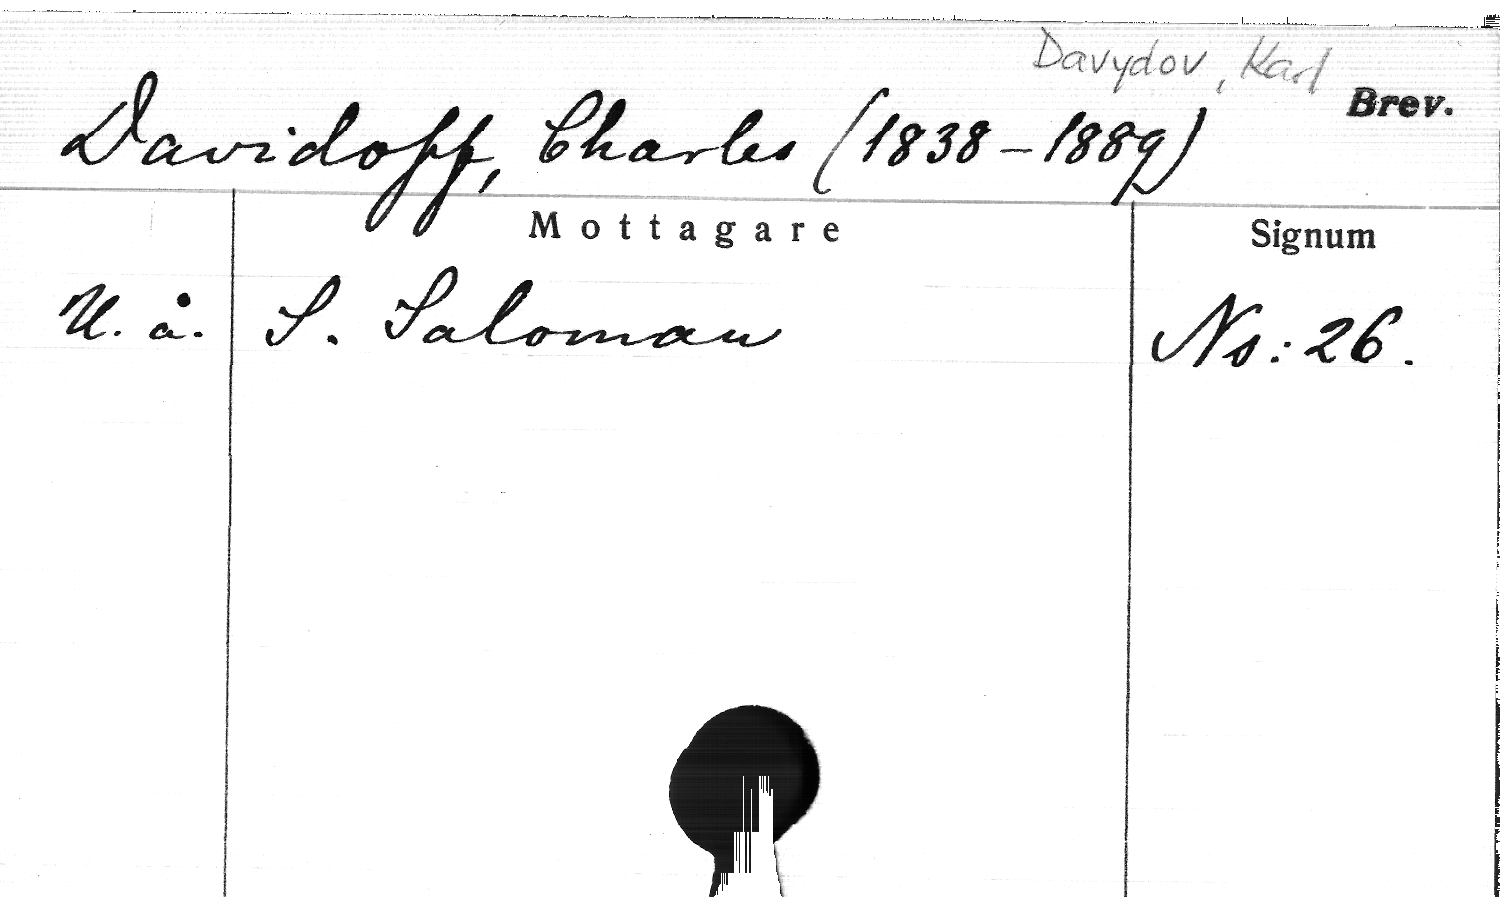 Davydov, Karl
Brev.
Davidoff, Charles (1838-1889)
Mottagare
Signum
U. å.
S. Saloman
Ns: 26.